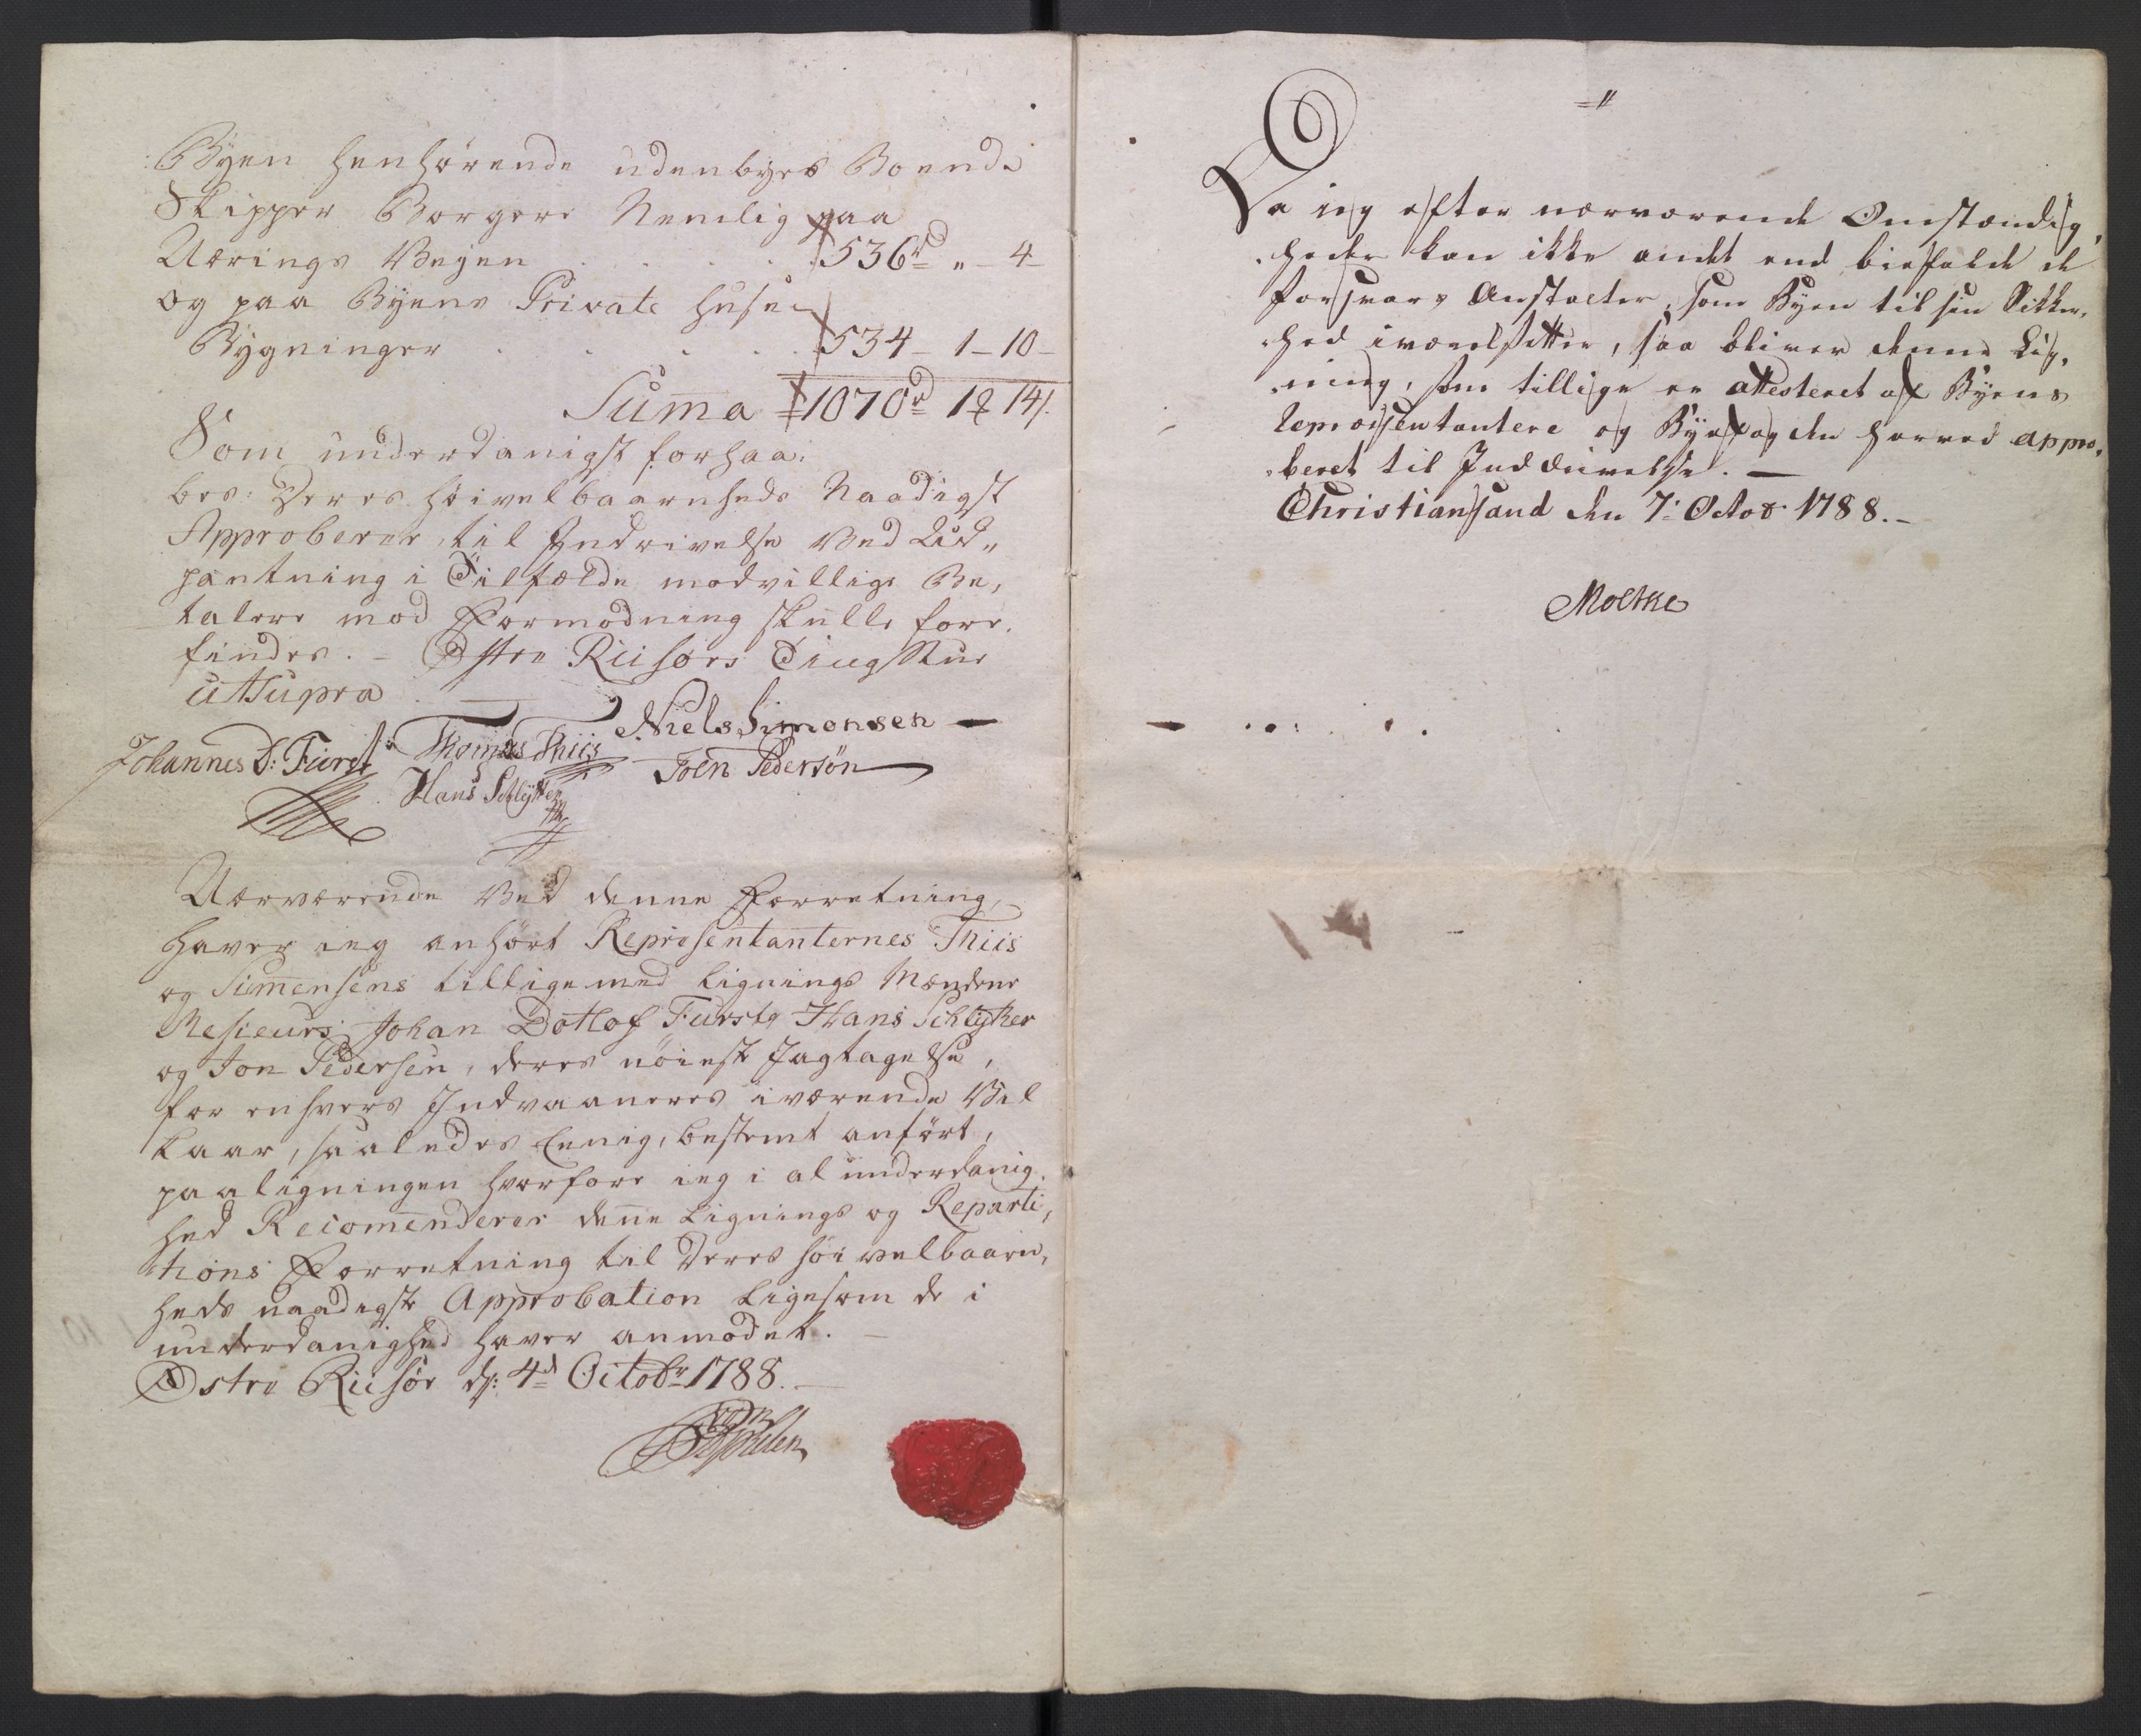 Byen henhørende udenbyes Boende
Skipper Borgere Nemlig paa
Nærings Veyen . . . . . 536rd " - 4 -
og paa Byens Private Huse
Bygninger . . . . . 534 - 1 - 10 -
Suma 1070rd 1 14.
Som underdanigst forhaa:
bes: Deres Høivelbaarnheds Naadigst
Approberer til Indrivelse Ved Ud„
pantning i Tilfælde modvillige Be,
talere mod Formodning skulle fore,
findes. - Østre Riisøers Tingstue
ut Supra
Niels Simonsen
Johannes D: Furst Thomas Thiis
Joen Pedersøn
Hans Schlytter
Nærværende Ved denne Forretning,
haver ieg anhørt Repræsentanternes Thiis
og Simensens tilligemed Lignings Mændene
Mesieurs Johan Dotlof Furst, Hans Schlytter
og Jon Pedersen, deres nøieste Jagtagelse,
for enhvers Indvaaneres iværende Vil
kaar, saaledes Eenig, bestemt anført,
paaligningen hvorfore ieg i al underdanig,
hed Recomenderer denne Lignings og Reparti,
tions Forretning til Deres Høivelbaarn,
heds naadigste Approbation Ligesom de i
underdanighed haver anmodet. -
Østre Riisøer d: 4d Octobr 1788. -
Da ieg efter nærværende Omstændig,
heder kan ikke andet end biefalde de
Forsvars Anstalter, som Byen til sin Sikker,
hed iværksætter, saa bliver denne Lig,
ning, som tillige er attesteret af Byens
Repræsentantere og Byefogden herved appro,
beret til Inddrivelse. -
Christiansand den 7: Octob. 1788. -
Moltke